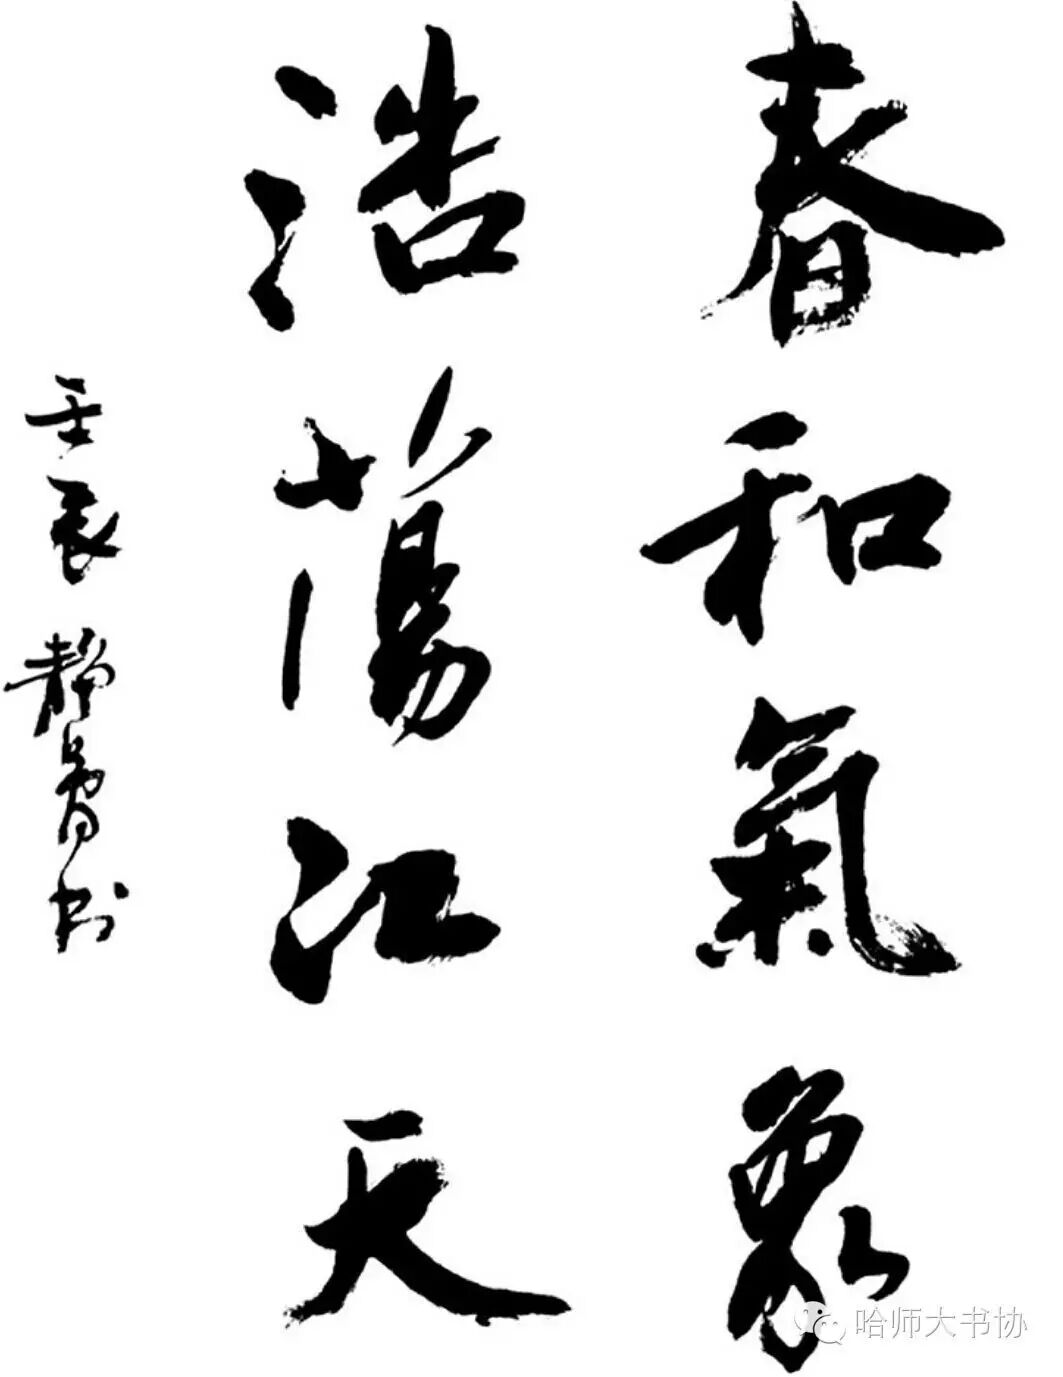 春和氣象
浩蕩江天
壬辰 靜 書
哈师大书协